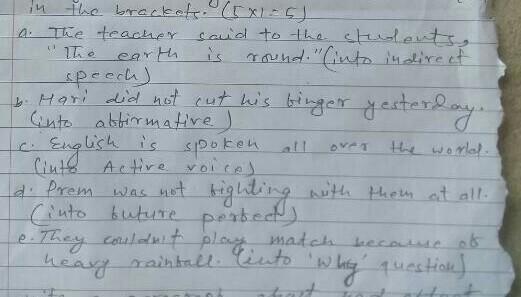 in the brackets. (5×1=5)
a. The teacher said to the students,
"The earth is round." (into indirect
speech)
b. Hari did not cut his finger yesterday.
(into affirmative)
c. English is spoken all over the world.
(into Active voice)
d. Prem was not fighting with them at all.
(into future perfect)
e. They couldn't play match because of
heavy rainfall. (into 'why' question)